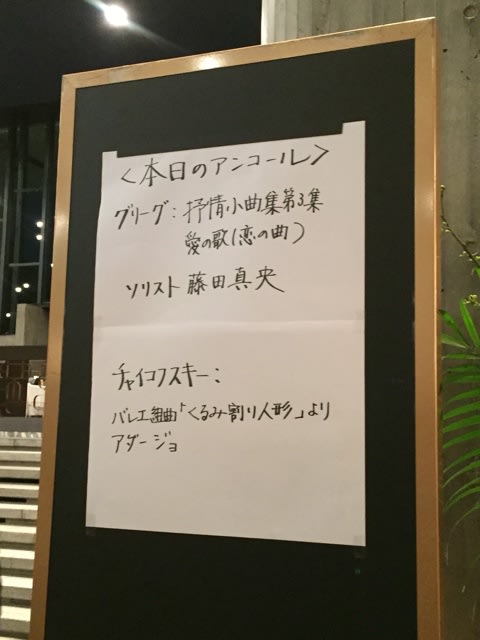 <本日のアンコール>
グリーグ：抒情小曲集第3集
愛の歌(恋の曲)
ソリスト 藤田真央
チャイコフスキー：
バレエ組曲「くるみ割り人形」より
アダージョ